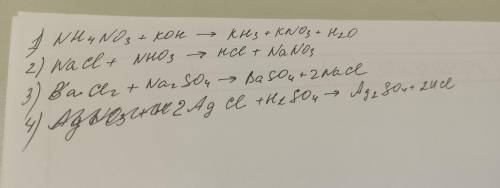 1) NH4NO3 + KOH → KH3 + KNO3 + H2O
2) NaCl + NHO3 → HCl + NaNO3
3) BaCl2 + Na2SO4 → BaSO4 + 2NaCl
4) 2AgCl + H2SO4 → Ag2SO4 + 2HCl